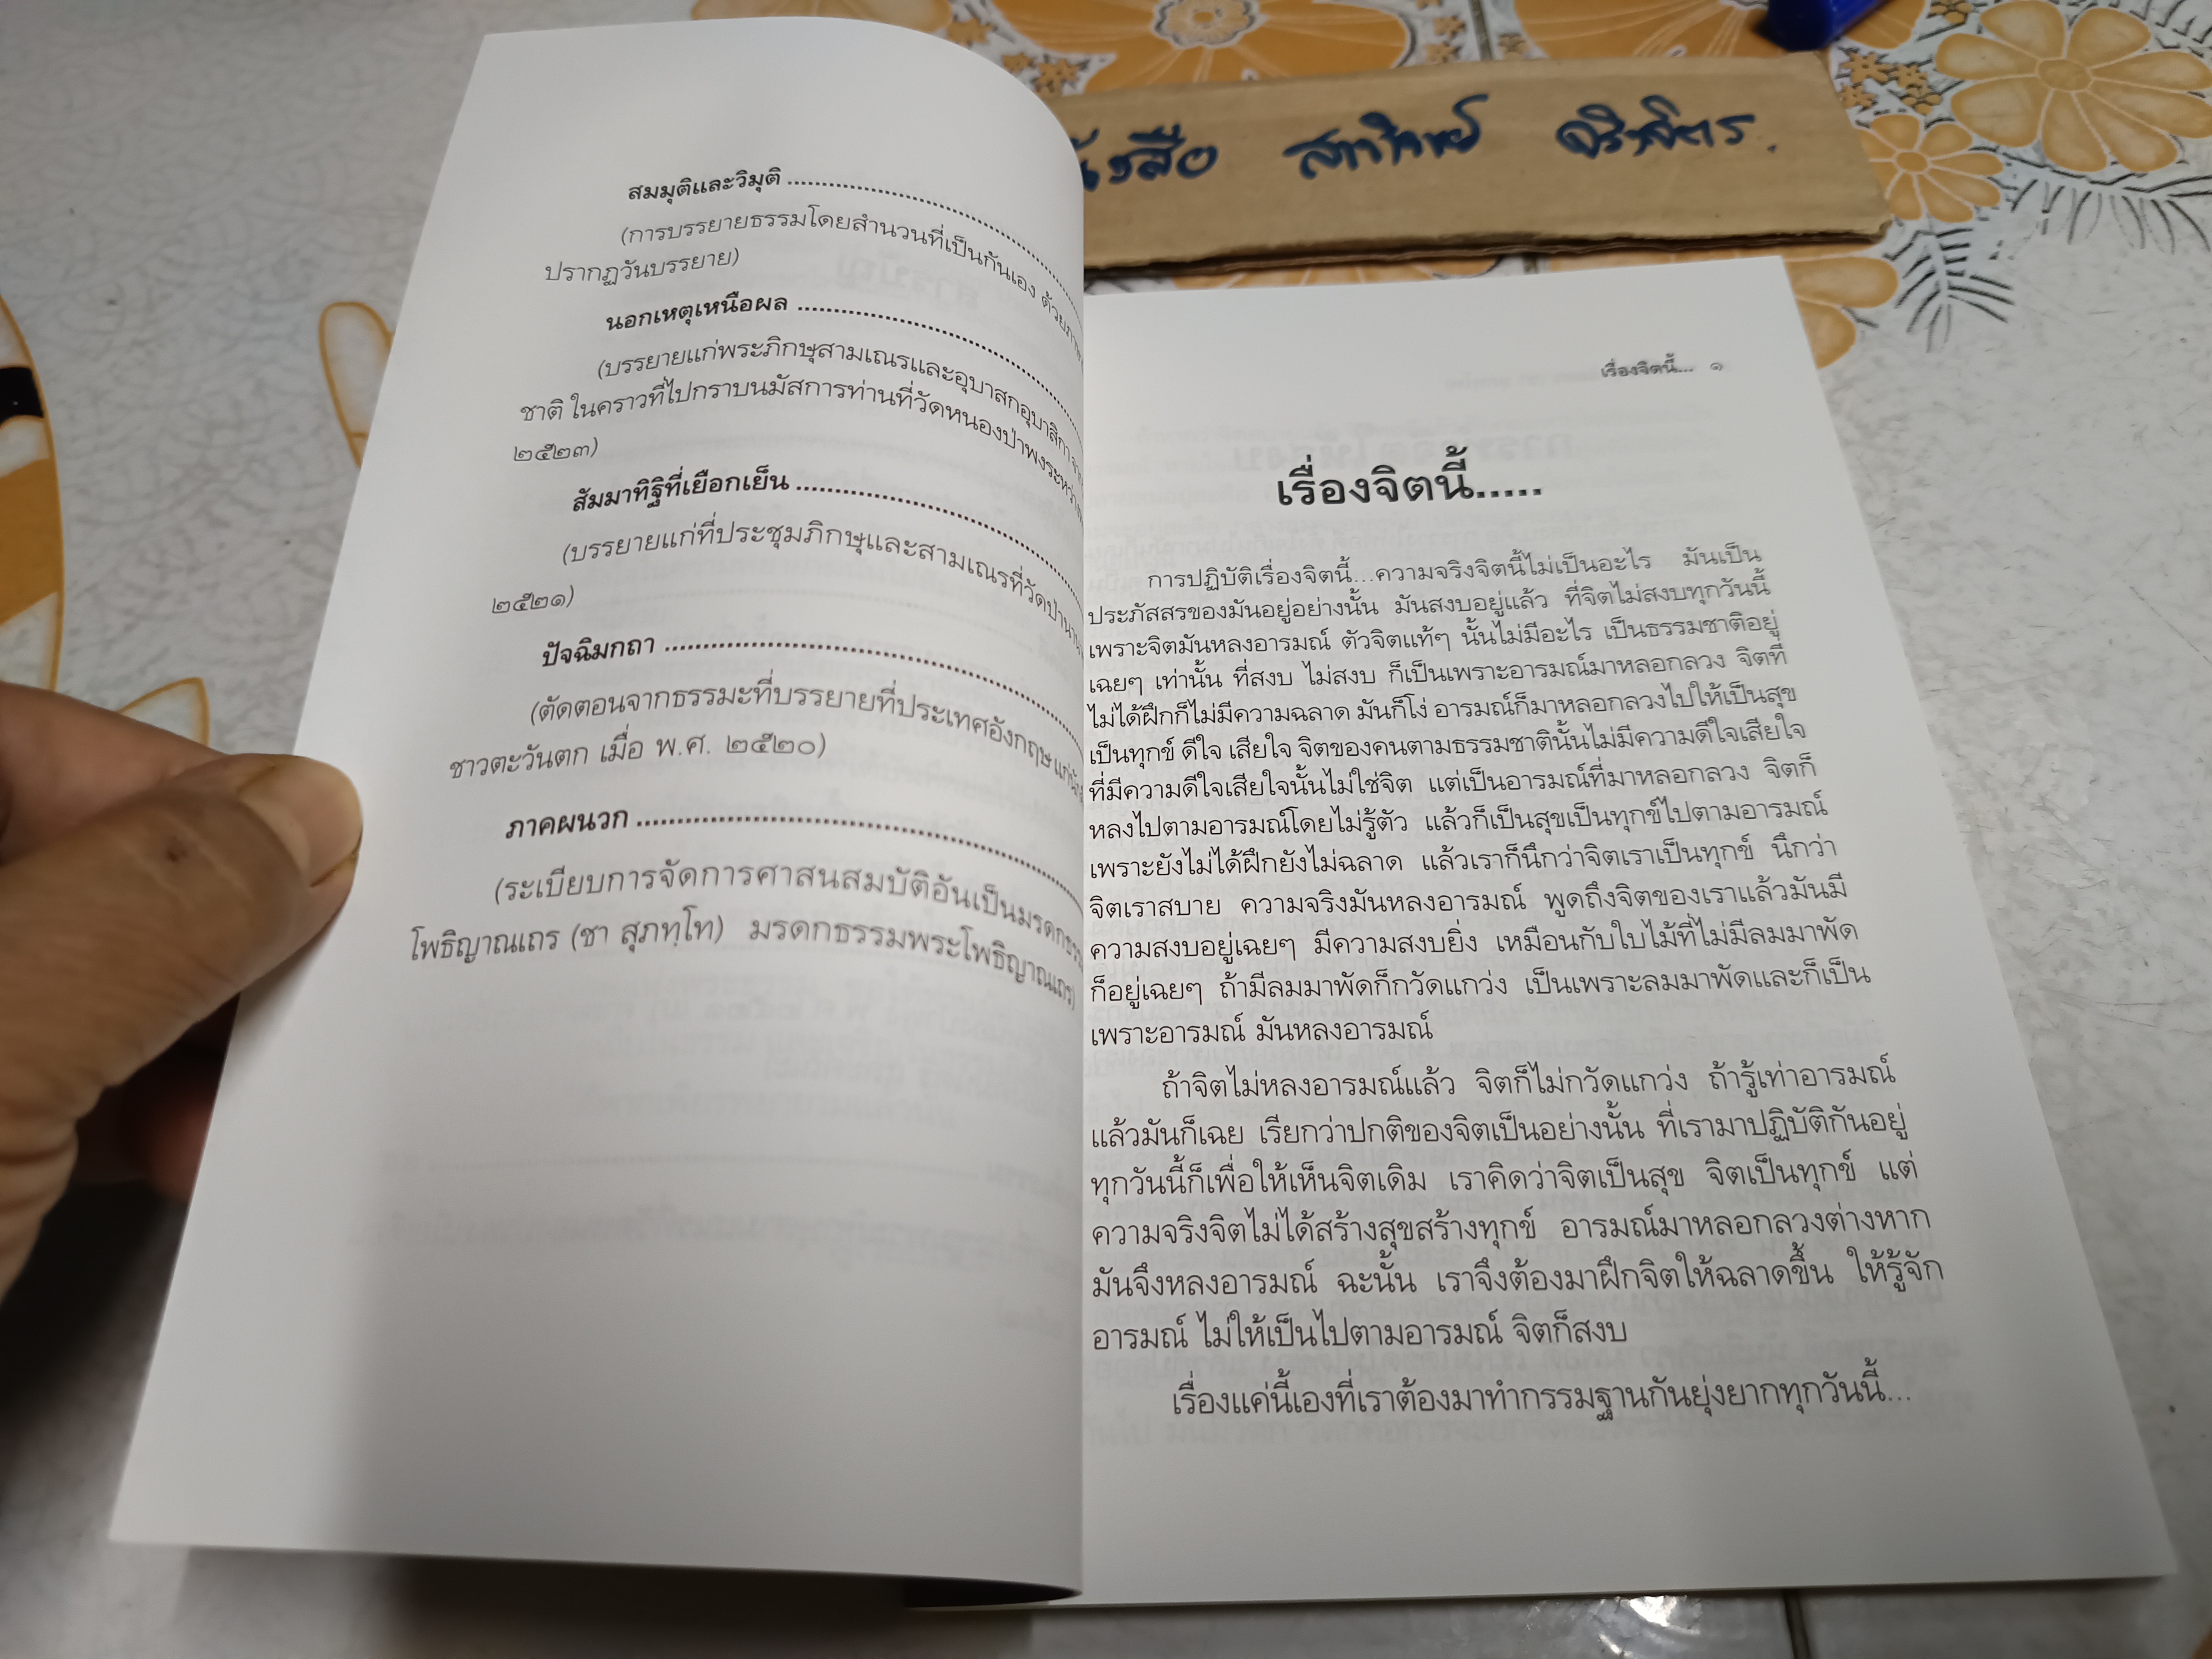 สมมุติและวิมุติ ........................
(การบรรยายธรรมโดยสำนวนที่เป็นกันเอง
ปรากฏวันบรรยาย)
นอกเหตุเหนือผล ........................
(บรรยายแก่พระภิกษุสามเณรและอุบาสกอุบาสิกา
ชาติ ในคราวที่ไปกราบนมัสการท่านที่วัดหนองป่าพงระหว่าง
๒๕๒๓)
สัมมาทิฐิที่เยือกเย็น ........................
(บรรยายแก่ที่ประชุมภิกษุและสามเณรที่วัดป่านานา
๒๕๒๑)
ปัจฉิมกถา ........................
(ตัดตอนจากธรรมะที่บรรยายที่ประเทศอังกฤษ
ชาวตะวันตก เมื่อ พ.ศ. ๒๕๒๐)
ภาคผนวก ........................
(ระเบียบการจัดการศาสนสมบัติอันเป็นมรดกธรรม
โพธิญาณเถร (ชา สุภทฺโท) มรดกธรรมพระโพธิญาณเถร)
เรื่องจิตนี้... ๑
เรื่องจิตนี้.....
การปฏิบัติเรื่องจิตนี้...ความจริงจิตนี้ไม่เป็นอะไร มันเป็น
ประภัสสรของมันอยู่อย่างนั้น มันสงบอยู่แล้ว ที่จิตไม่สงบทุกวันนี้
เพราะจิตมันหลงอารมณ์ ตัวจิตแท้ๆ นั้นไม่มีอะไร เป็นธรรมชาติอยู่
เฉยๆ เท่านั้น ที่สงบ ไม่สงบ ก็เป็นเพราะอารมณ์มาหลอกลวง จิตที่
ไม่ได้ฝึกก็ไม่มีความฉลาด มันก็โง่ อารมณ์ก็มาหลอกลวงไปให้เป็นสุข
เป็นทุกข์ ดีใจ เสียใจ จิตของคนตามธรรมชาตินั้นไม่มีความดีใจเสียใจ
ที่มีความดีใจเสียใจนั้นไม่ใช่จิต แต่เป็นอารมณ์ที่มาหลอกลวง จิตก็
หลงไปตามอารมณ์โดยไม่รู้ตัว แล้วก็เป็นสุขเป็นทุกข์ไปตามอารมณ์
เพราะยังไม่ได้ฝึกยังไม่ฉลาด แล้วเราก็นึกว่าจิตเราเป็นทุกข์ นึกว่า
จิตเราสบาย ความจริงมันหลงอารมณ์ พูดถึงจิตของเราแล้วมันมี
ความสงบอยู่เฉยๆ มีความสงบยิ่ง เหมือนกับใบไม้ที่ไม่มีลมมาพัด
ก็อยู่เฉยๆ ถ้ามีลมมาพัดก็กวัดแกว่ง เป็นเพราะลมมาพัดและก็เป็น
เพราะอารมณ์ มันหลงอารมณ์
ถ้าจิตไม่หลงอารมณ์แล้ว จิตก็ไม่กวัดแกว่ง ถ้ารู้เท่าอารมณ์
แล้วมันก็เฉย เรียกว่าปกติของจิตเป็นอย่างนั้น ที่เรามาปฏิบัติกันอยู่
ทุกวันนี้ก็เพื่อให้เห็นจิตเดิม เราคิดว่าจิตเป็นสุข จิตเป็นทุกข์ แต่
ความจริงจิตไม่ได้สร้างสุขสร้างทุกข์ อารมณ์มาหลอกลวงต่างหาก
มันจึงหลงอารมณ์ ฉะนั้น เราจึงต้องมาฝึกจิตให้ฉลาดขึ้น ให้รู้จัก
อารมณ์ ไม่ให้เป็นไปตามอารมณ์ จิตก็สงบ
เรื่องแค่นี้เองที่เราต้องมาทำกรรมฐานกันยุ่งยากทุกวันนี้...